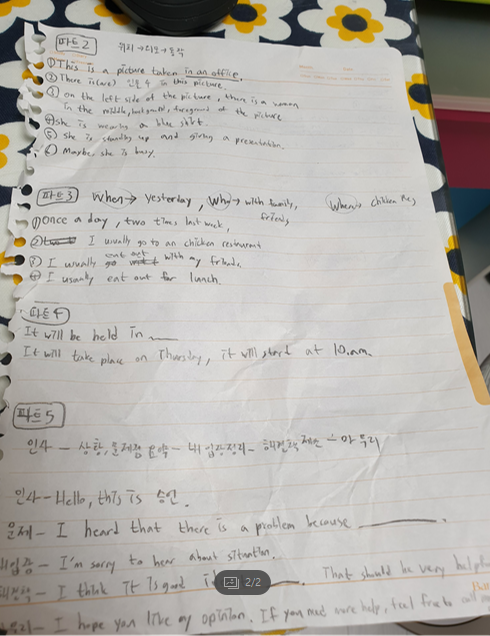 파트2 위치→외모→동작
① This is a picture taken in an office.
② There is(are) 인물 4 in this picture.
③ on the left side of the picture, there is a woman
In the middle, background, foreground of the picture
④ she is wearing a blue shirt.
⑤ she is standing up and giving a presentation.
⑥ Maybe she is busy.
파트3 When → yesterday, Who → with family, friends Where → chicken
① Once a day, two times last week,
② I usually go to an chicken restaurant
③ I usually eat out with my friends.
④ I usually eat out for lunch.
파트4
It will be held in ___
It will take place on Thursday, it will start at 10.am.
파트5
인사 - 상황, 문제점 요약 - 내 입장정리 - 해결책 제안 - 마무리
인사 - Hello, this is 승연.
문제 - I heard that there is a problem because ___.
내입장 - I'm sorry to hear about situation.
해결책 - I think it is good ___. That should be very helpful
마무리 - I hope you like my opinion. If you need more help, feel free to call
2/2